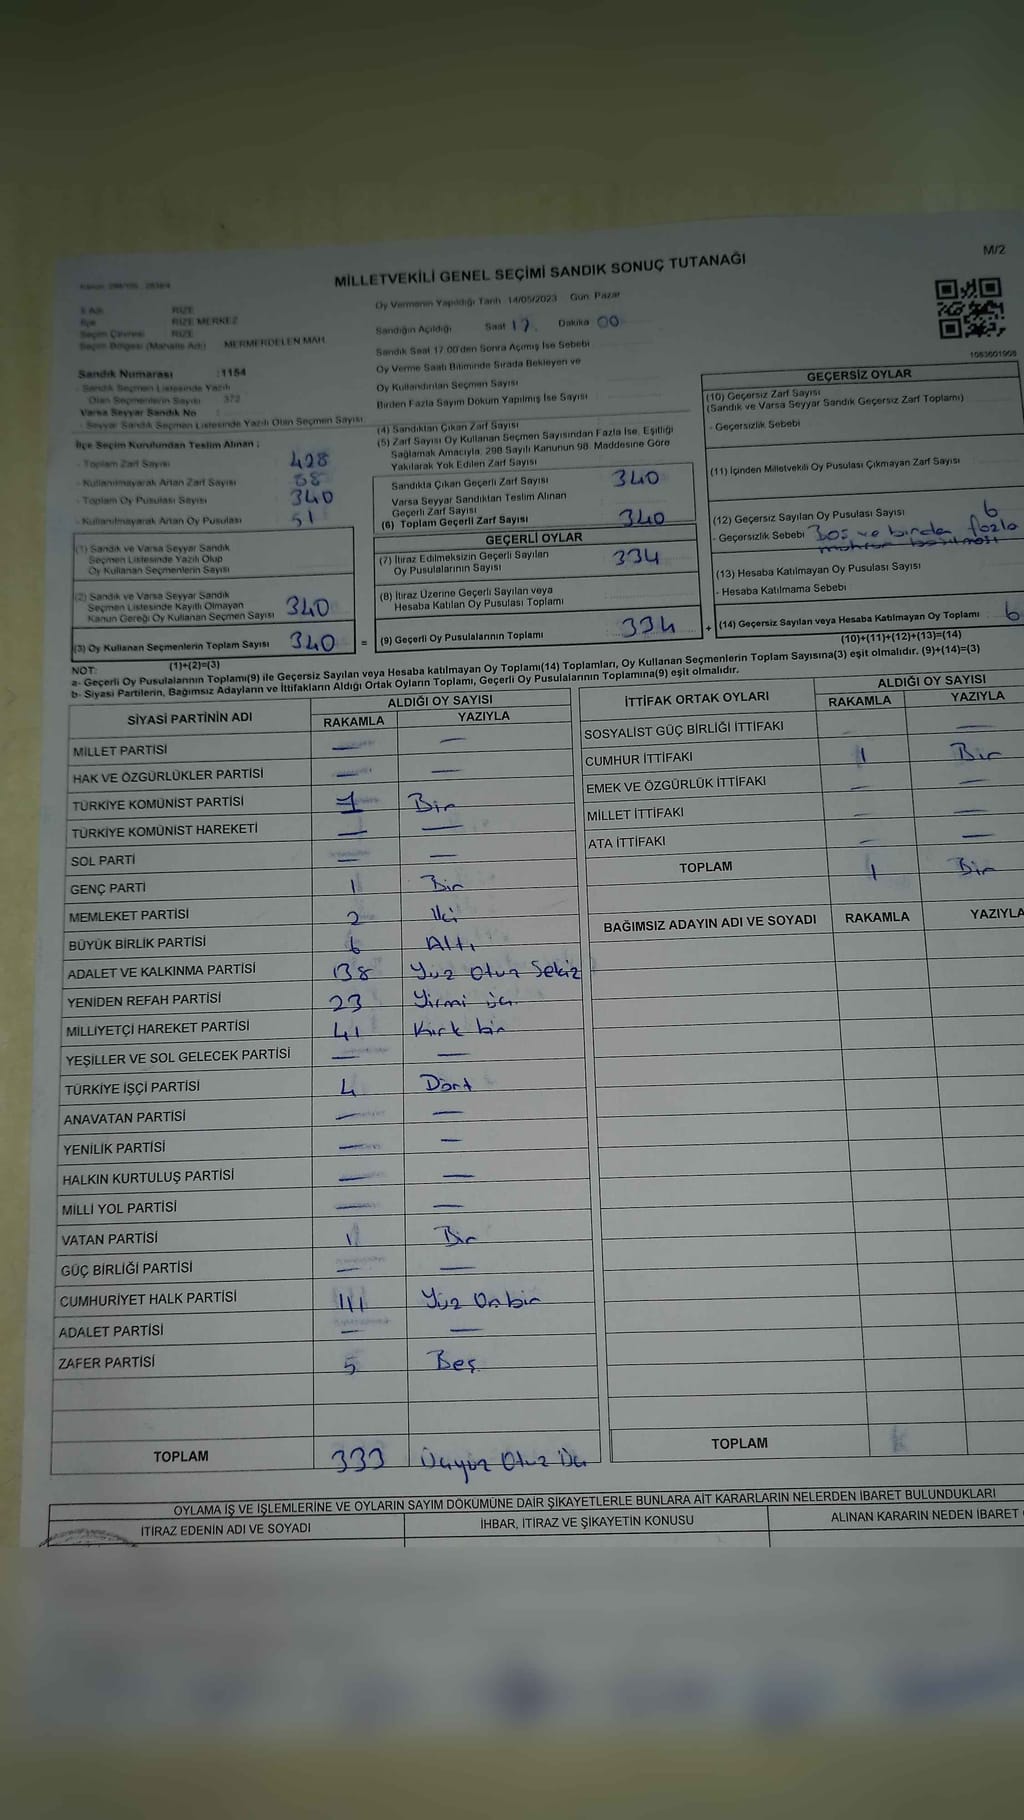 M/2
MİLLETVEKİLİ GENEL SEÇİMİ SANDIK SONUÇ TUTANAĞI
İl Adı RİZE
İlçe RİZE MERKEZ
Seçim Çevresi RİZE
Seçim Bölgesi (Mahalle Adı) MERMERDELEN MAH.
Sandık Numarası :1154
- Sandık Seçmen Listesinde Yazılı
Olan Seçmenlerin Sayısı 372
Varsa Seyyar Sandık No :
- Seyyar Sandık Seçmen Listesinde Yazılı Olan Seçmen Sayısı:
İlçe Seçim Kurulundan Teslim Alınan :
- Toplam Zarf Sayısı 428
- Kullanılmayarak Artan Zarf Sayısı 88
- Toplam Oy Pusulası Sayısı 340
- Kullanılmayarak Artan Oy Pusulası 51
(1) Sandık ve Varsa Seyyar Sandık
Seçmen Listesinde Yazılı Olup
Oy Kullanan Seçmenlerin Sayısı
(2) Sandık ve Varsa Seyyar Sandık
Seçmen Listesinde Kayıtlı Olmayan
Kanun Gereği Oy Kullanan Seçmen Sayısı 340
(3) Oy Kullanan Seçmenlerin Toplam Sayısı 340 =
(1)+(2)=(3)
Oy Vermenin Yapıldığı Tarih 14/05/2023 Gün: Pazar
Sandığın Açıldığı Saat 17 Dakika 00
Sandık Saat 17.00'den Sonra Açılmış İse Sebebi
Oy Verme Saati Bitiminde Sırada Bekleyen ve
Oy Kullandırılan Seçmen Sayısı
Birden Fazla Sayım Döküm Yapılmış İse Sayısı
(4) Sandıktan Çıkan Zarf Sayısı
(5) Zarf Sayısı Oy Kullanan Seçmen Sayısından Fazla İse, Eşitliği
Sağlamak Amacıyla, 298 Sayılı Kanunun 98. Maddesine Göre
Yakılarak Yok Edilen Zarf Sayısı
Sandıkta Çıkan Geçerli Zarf Sayısı 340
Varsa Seyyar Sandıktan Teslim Alınan
Geçerli Zarf Sayısı
(6) Toplam Geçerli Zarf Sayısı 340
GEÇERLİ OYLAR
(7) İtiraz Edilmeksizin Geçerli Sayılan
Oy Pusulalarının Sayısı 334
(8) İtiraz Üzerine Geçerli Sayılan veya
Hesaba Katılan Oy Pusulası Toplamı
(9) Geçerli Oy Pusulalarının Toplamı 334 +
1083601908
GEÇERSİZ OYLAR
(10) Geçersiz Zarf Sayısı
(Sandık ve Varsa Seyyar Sandık Geçersiz Zarf Toplamı)
- Geçersizlik Sebebi
(11) İçinden Milletvekili Oy Pusulası Çıkmayan Zarf Sayısı
(12) Geçersiz Sayılan Oy Pusulası Sayısı 6
- Geçersizlik Sebebi Boş ve birden fazla
mühür basılması
(13) Hesaba Katılmayan Oy Pusulası Sayısı
- Hesaba Katılmama Sebebi
(14) Geçersiz Sayılan veya Hesaba Katılmayan Oy Toplamı 6
(10)+(11)+(12)+(13)=(14)
NOT:
a- Geçerli Oy Pusulalarının Toplamı(9) ile Geçersiz Sayılan veya Hesaba katılmayan Oy Toplamı(14) Toplamları, Oy Kullanan Seçmenlerin Toplam Sayısına(3) eşit olmalıdır. (9)+(14)=(3)
b- Siyasi Partilerin, Bağımsız Adayların ve İttifakların Aldığı Ortak Oyların Toplamı, Geçerli Oy Pusulalarının Toplamına(9) eşit olmalıdır.
SİYASİ PARTİNİN ADI ALDIĞI OY SAYISI
RAKAMLA YAZIYLA
MİLLET PARTİSİ — —
HAK VE ÖZGÜRLÜKLER PARTİSİ — —
TÜRKİYE KOMÜNİST PARTİSİ 1 Bir
TÜRKİYE KOMÜNİST HAREKETİ — —
SOL PARTİ — —
GENÇ PARTİ 1 Bir
MEMLEKET PARTİSİ 2 İki
BÜYÜK BİRLİK PARTİSİ 6 Altı
ADALET VE KALKINMA PARTİSİ 138 Yüz Otuz Sekiz
YENİDEN REFAH PARTİSİ 23 Yirmi üç
MİLLİYETÇİ HAREKET PARTİSİ 41 Kırk bir
YEŞİLLER VE SOL GELECEK PARTİSİ — —
TÜRKİYE İŞÇİ PARTİSİ 4 Dört
ANAVATAN PARTİSİ — —
YENİLİK PARTİSİ — —
HALKIN KURTULUŞ PARTİSİ — —
MİLLİ YOL PARTİSİ — —
VATAN PARTİSİ 1 Bir
GÜÇ BİRLİĞİ PARTİSİ — —
CUMHURİYET HALK PARTİSİ 111 Yüz Onbir
ADALET PARTİSİ — —
ZAFER PARTİSİ 5 Beş
TOPLAM 333 Üçyüz Otuz Üç
İTTİFAK ORTAK OYLARI ALDIĞI OY SAYISI
RAKAMLA YAZIYLA
SOSYALİST GÜÇ BİRLİĞİ İTTİFAKI — —
CUMHUR İTTİFAKI 1 Bir
EMEK VE ÖZGÜRLÜK İTTİFAKI — —
MİLLET İTTİFAKI — —
ATA İTTİFAKI — —
TOPLAM 1 Bir
BAĞIMSIZ ADAYIN ADI VE SOYADI RAKAMLA YAZIYLA
TOPLAM
OYLAMA İŞ VE İŞLEMLERİNE VE OYLARIN SAYIM DÖKÜMÜNE DAİR ŞİKAYETLERLE BUNLARA AİT KARARLARIN NELERDEN İBARET BULUNDUKLARI
İTİRAZ EDENİN ADI VE SOYADI İHBAR, İTİRAZ VE ŞİKAYETİN KONUSU ALINAN KARARIN NEDEN İBARET